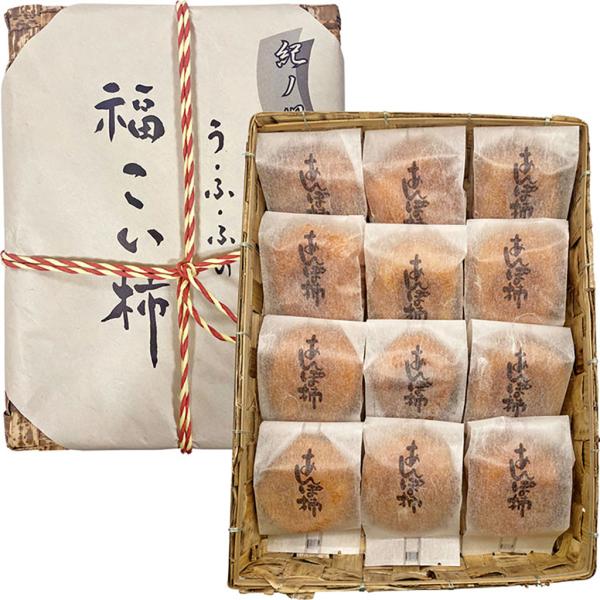 紀ノ川
う・ふ・ふの
福こい柿
あんぽ柿
あんぽ柿
あんぽ柿
あんぽ柿
あんぽ柿
あんぽ柿
あんぽ柿
あんぽ柿
あんぽ柿
あんぽ柿
あんぽ柿
あんぽ柿